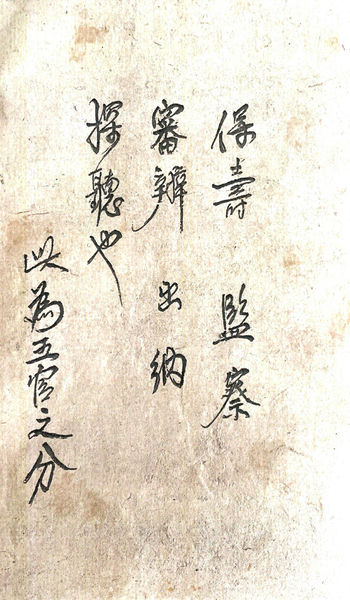 保壽 監察
審辨 出納
探聽也
此為五官之分